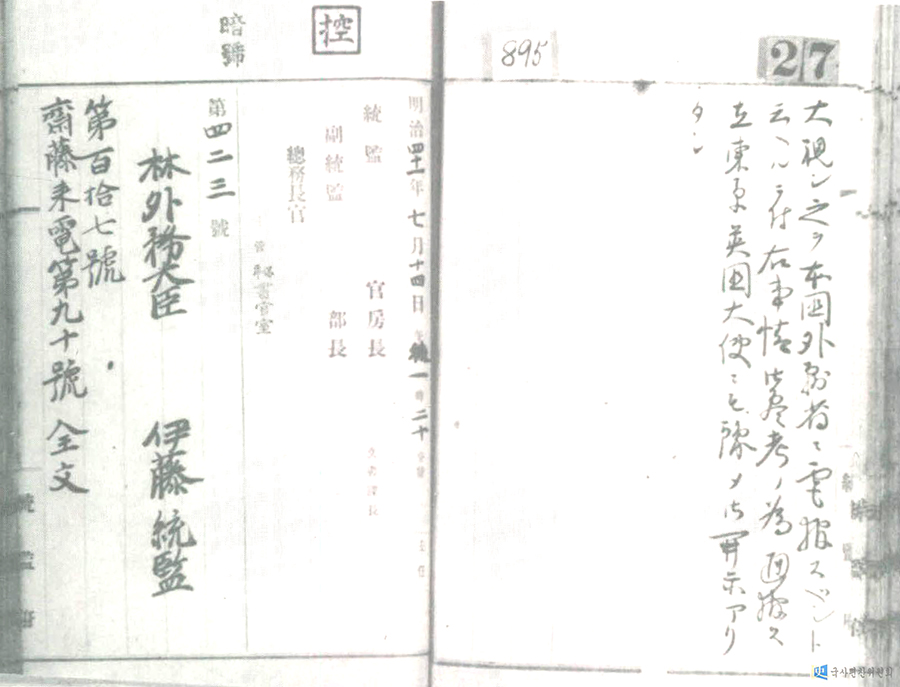 27
895
大視シ之ヲ本国外務省ニ電報スベシト
云ヘルニ付右事情御参考ノ為回報ス
在東京英国大使ニモ予メ御開示アリ
タシ
控
暗號
明治四十一年七月十四日 後一時二十
統監 官房長
副統監 部長
總務長官
書官室
第四二三號
林外務大臣 伊藤統監
第百拾七號
齋藤来電第九十號全文
국사편찬위원회